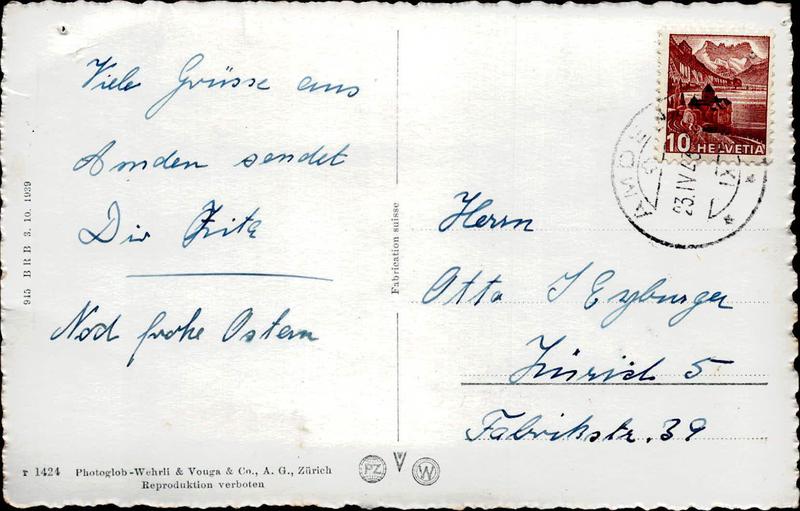 Viele Grüsse aus
Amden sendet
Dir Zita
Noch frohe Ostern
945 BRB 3. 10. 1939
r 1424 Photoglob-Wehrli & Vouga & Co., A. G., Zürich
Reproduktion verboten
PZ V W
Fabrication suisse
10 HELVETIA
AMDEN
23.IV.
Herrn
Otto Eyburger
Zürich 5
Fabrikstr. 39